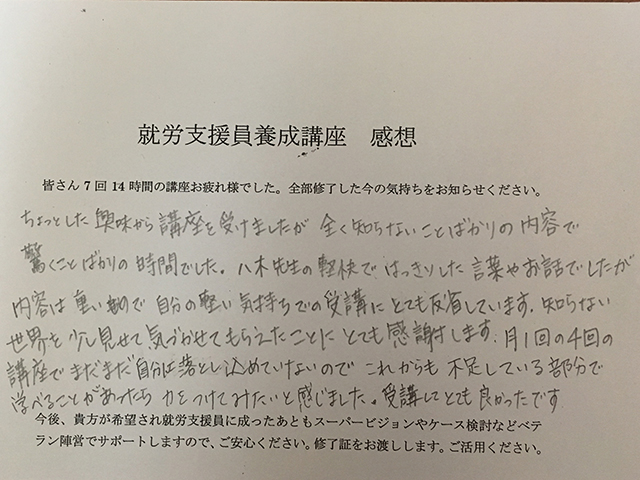 就労支援員養成講座 感想
皆さん7回14時間の講座お疲れ様でした。全部修了した今の気持ちをお知らせください。
ちょっとした興味から講座を受けましたが 全く知らないことばかりの内容で
驚くことばかりの時間でした。八木先生の軽快で はっきりした言葉やお話でしたが
内容は重いもので 自分の軽い気持ちでの受講にとても反省しています。知らない
世界を少し見せて気づかせてもらえたことにとても感謝します。月1回の4回の
講座でまだまだ自分に落とし込めていないので これからも不足している部分で
学べることがあったら 力をつけてみたいと感じました。受講してとても良かったです
今後、貴方が希望され就労支援員に成ったあともスーパービジョンやケース検討などベテ
ラン陣営でサポートしますので、ご安心ください。修了証をお渡しします。ご活用ください。